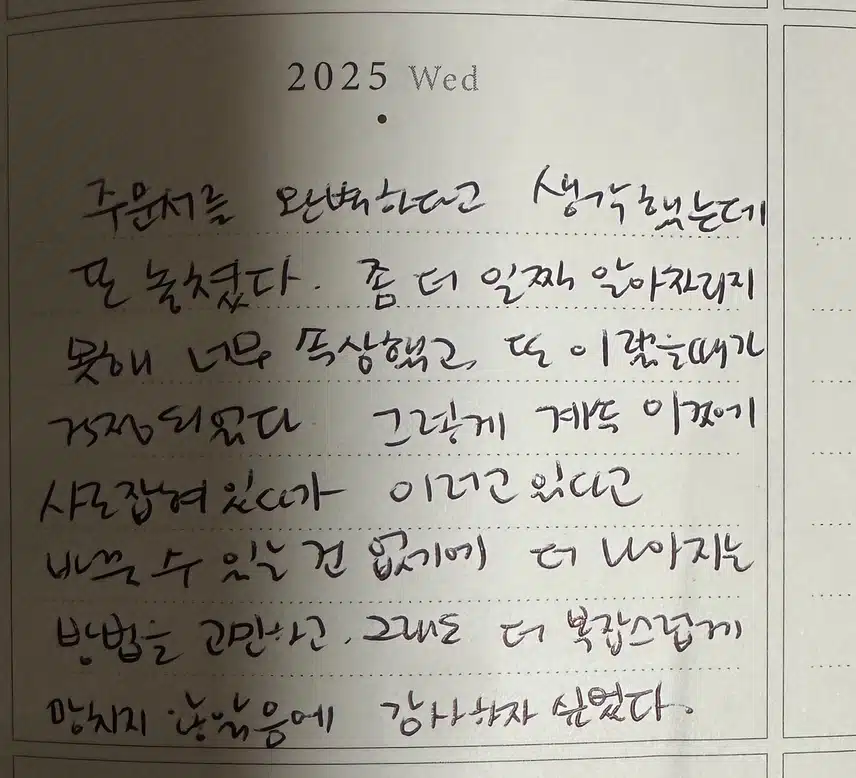 2025 Wed
주문서를 완벽하다고 생각했는데
또 놓쳤다. 좀 더 일찍 알아차리지
못해 너무 속상했고, 또 이랬을때가
걱정되었다 그렇게 계속 이쪽에
사로잡혀 있다가 이러고 있다고
바뀔 수 있는 건 없기에 더 나아지는
방법을 고민하고, 그래도 더 복잡스럽게
망치지 않았음에 감사하자 싶었다.